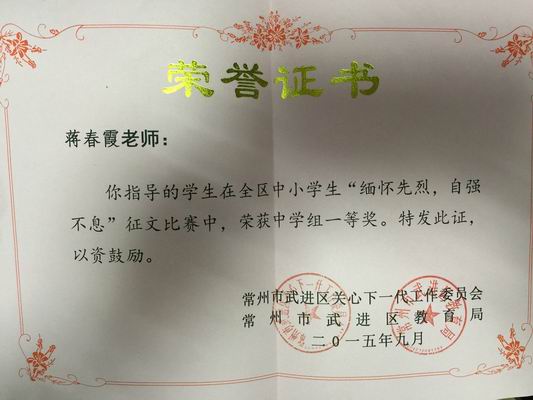 荣誉证书
蒋春霞老师：
你指导的学生在全区中小学生“缅怀先烈，自强
不息”征文比赛中，荣获中学组一等奖。特发此证，
以资鼓励。
常州市武进区关心下一代工作委员会
常州市武进区教育局
二〇一五年九月